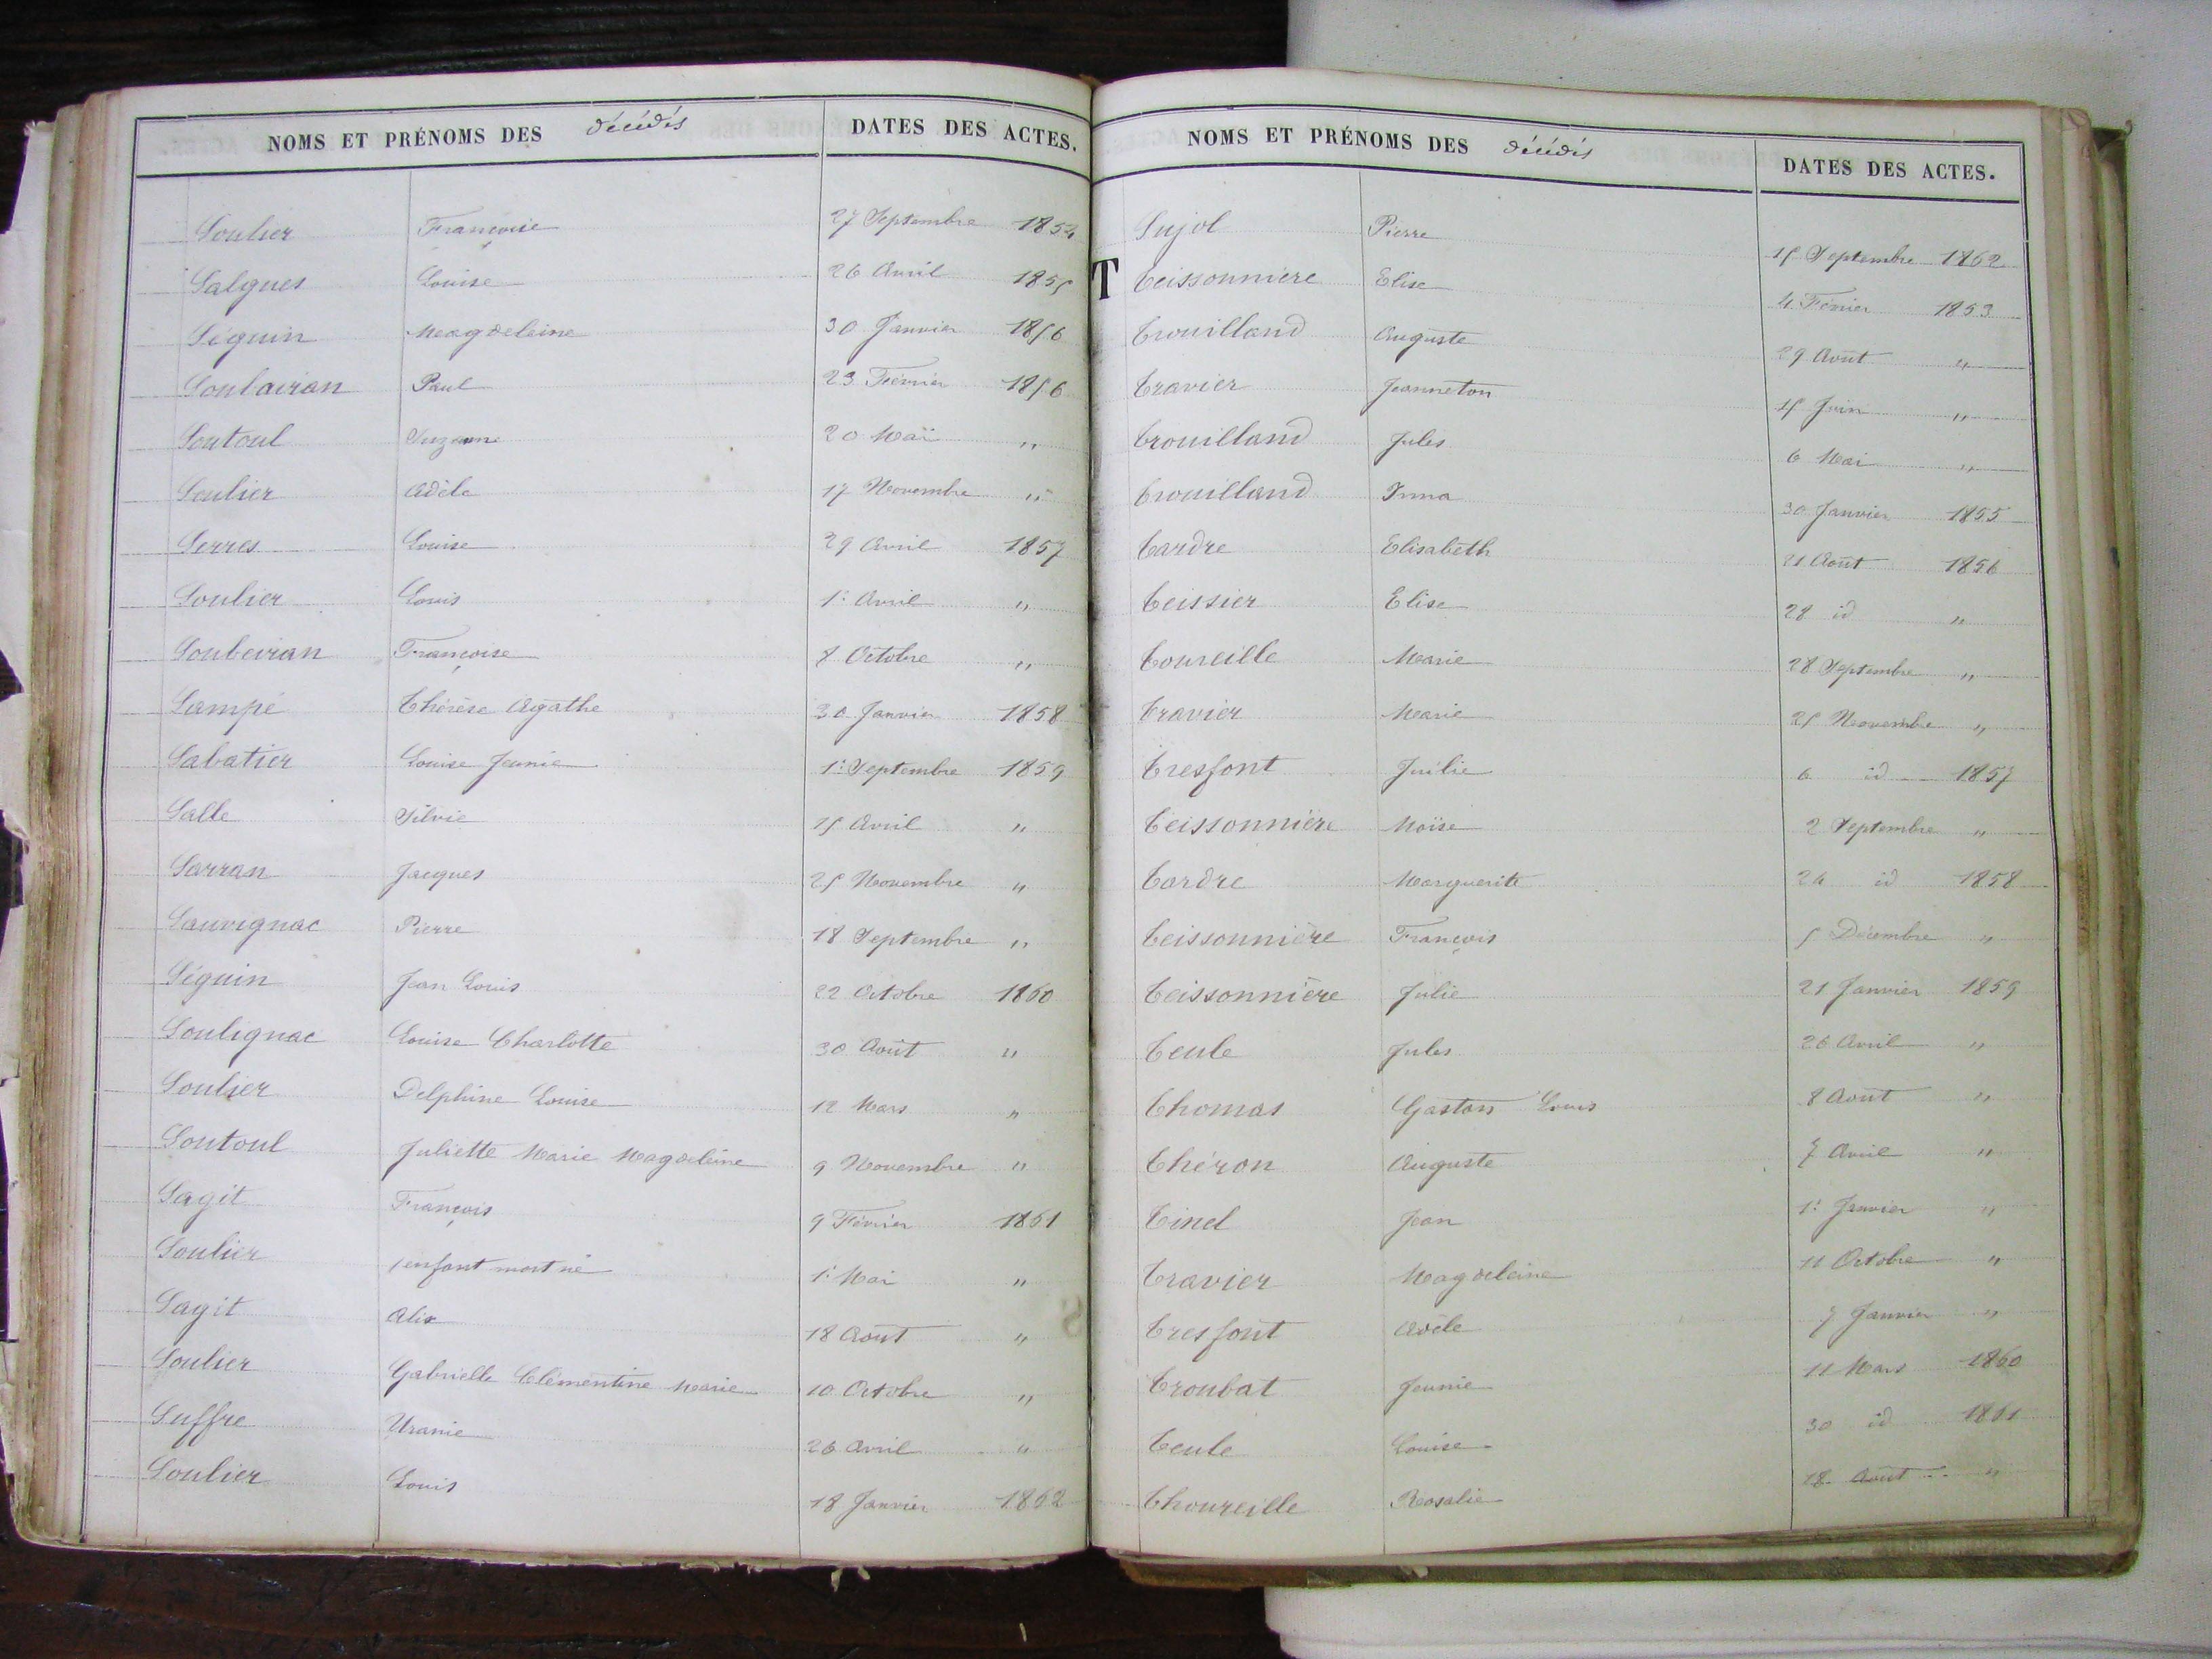 NOMS ET PRÉNOMS DES décédés DATES DES ACTES.
Soulier Françoise 27 Septembre 1854
Salgues Louise 26 Avril 1855
Séguin Magdeleine 30 Janvier 1856
Soulairan Paul 23 Février 1856
Soutoul Suzanne 20 Mai "
Soulier Adèle 17 Novembre "
Serres Louise 29 Avril 1857
Soulier Louis 1er Avril "
Soubeiran Françoise 8 Octobre "
Sampé Thérèse Agathe 30 Janvier 1858
Sabatier Louise Jennie 1er Septembre 1859
Salle Silvie 15 Avril "
Sarran Jacques 25 Novembre "
Sauvignac Pierre 18 Septembre "
Séguin Jean Louis 22 Octobre 1860
Soulignac Louise Charlotte 30 Août "
Soulier Delphine Louise 12 Mars "
Soutoul Juliette Marie Magdeleine 9 Novembre "
Sagit François 9 Février 1861
Soulier 1 enfant mort né 1er Mai "
Sagit Alix 18 Août "
Soulier Gabrielle Clémentine Marie 10 Octobre "
Suffre Uranie 26 Avril "
Soulier Louis 18 Janvier 1862
NOMS ET PRÉNOMS DES décédés DATES DES ACTES.
Sujol Pierre 15 Septembre 1862
T Teissonnière Elise 4 Février 1853
Trouilland Auguste 29 Août "
Travier Jeanneton 15 Juin "
Trouilland Jules 6 Mai "
Trouilland Irma 30 Janvier 1855
Tardre Elisabeth 21 Août 1856
Teissier Elise 28 id "
Toureille Marie 28 Septembre "
Travier Marie 25 Novembre "
Tresfont Juilie 6 id 1857
Teissonnière Moïse 2 Septembre "
Tardre Marguerite 24 id 1858
Teissonnière François 5 Décembre "
Teissonnière Julie 21 Janvier 1859
Teule Jules 26 Avril "
Thomas Gaston Louis 8 Août "
Théron Auguste 7 Avril "
Tinel Jean 1er Janvier "
Travier Magdeleine 11 Octobre "
Tresfont Adèle 7 Janvier "
Troubat Jennie 11 Mars 1860
Teule Louise 30 id 1861
Thoureille Rosalie 18 Août "